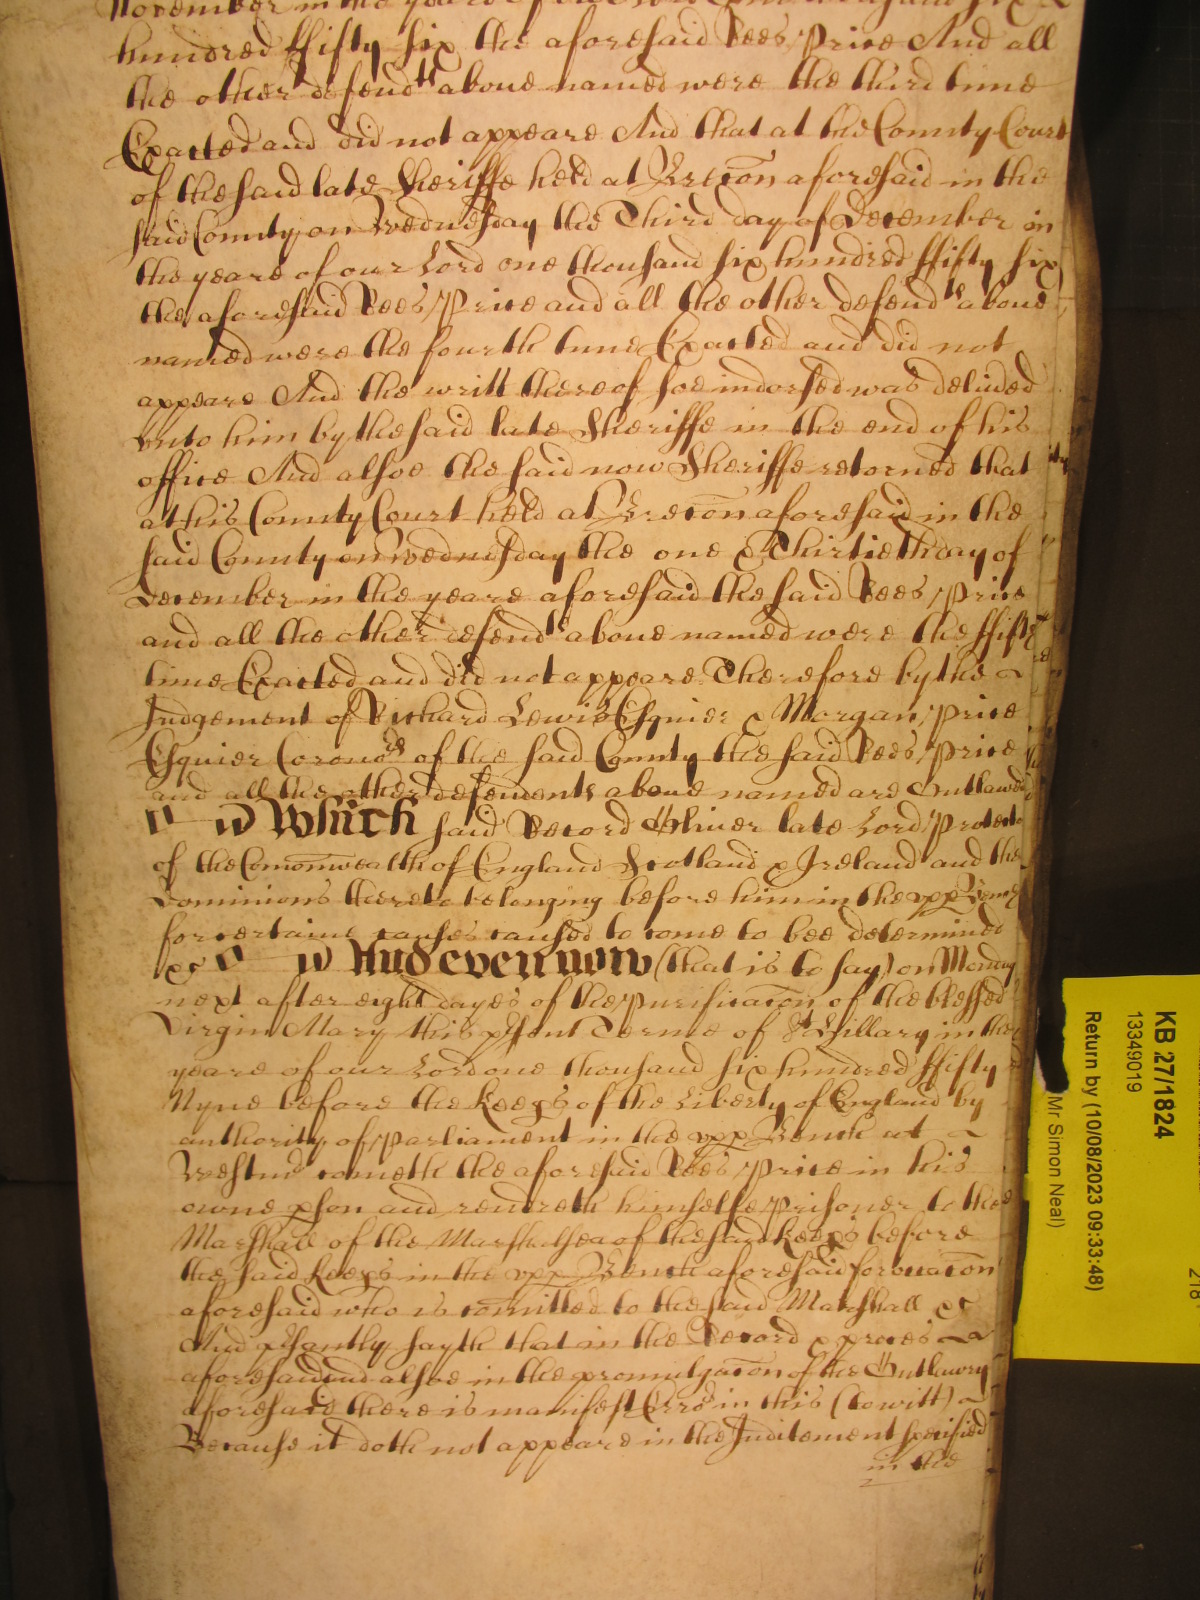 November in the yeare of our Lord one thousand six
hundred ffifty six the aforesaid Rees Price And all
the other defendts aboue named were the third time
Exacted and did not appeare And that at the County Court
of the said late Sheriffe held at Brecon aforesaid in the
said County on Wednesday the Third day of December in
the yeare of our Lord one thousand six hundred ffifty six
the aforesaid Rees Price and all the other defendts aboue
named were the fourth time Exacted and did not
appeare And the writt thereof soe indorsed was deliued
vnto him by the said late Sheriffe in the end of his
office And alsoe the said now Sheriffe retorned that
at his County Court held at Brecon aforesaid in the
said County on Wednesday the one & Thirtieth day of
December in the yeare aforesaid the said Rees Price
and all the other defendts aboue named were the ffift
time Exacted and did not appeare Therefore by the
Judgement of Richard Lewis Esquier & Morgan Price
Esquier Corono's of the said County the said Rees Price
and all the other defendents aboue named are Outlawed
Which said Record Oliuer late Lord Protector
of the Comonwealth of England Scotland & Ireland and the
Dominions thereto belonging before him in the vpp Bench
for certaine causes caused to come to bee determined
&c And even now (that is to say) on Monday
next after eight dayes of the purificacon of the blessed
Virgin Mary this psent Terme of St Hillary in the
yeare of our Lord one thousand six hundred ffifty
Nyne before the Keeps of the Liberty of England by
authority of Parliament in the vpp Bench at
Westmr cometh the aforesaid Rees Price in his
owne pson and rendreth himselfe prisoner to the
Marshall of the Marshalsea of the said Keeps before
the said Keeps in the vpp Bench aforesaid for occacon
aforesaid who is comitted to the said Marshall &c
And psently sayth that in the Record & proces
aforesaid and alsoe in the promulgacon of the Outlawry
aforesaid there is manifest Erro in this (to witt)
Because it doth not appeare in the Inditement specified
in the
KB 27/1824
13349019
Return by (10/08/2023 09:33:48)
Mr Simon Neal)
218